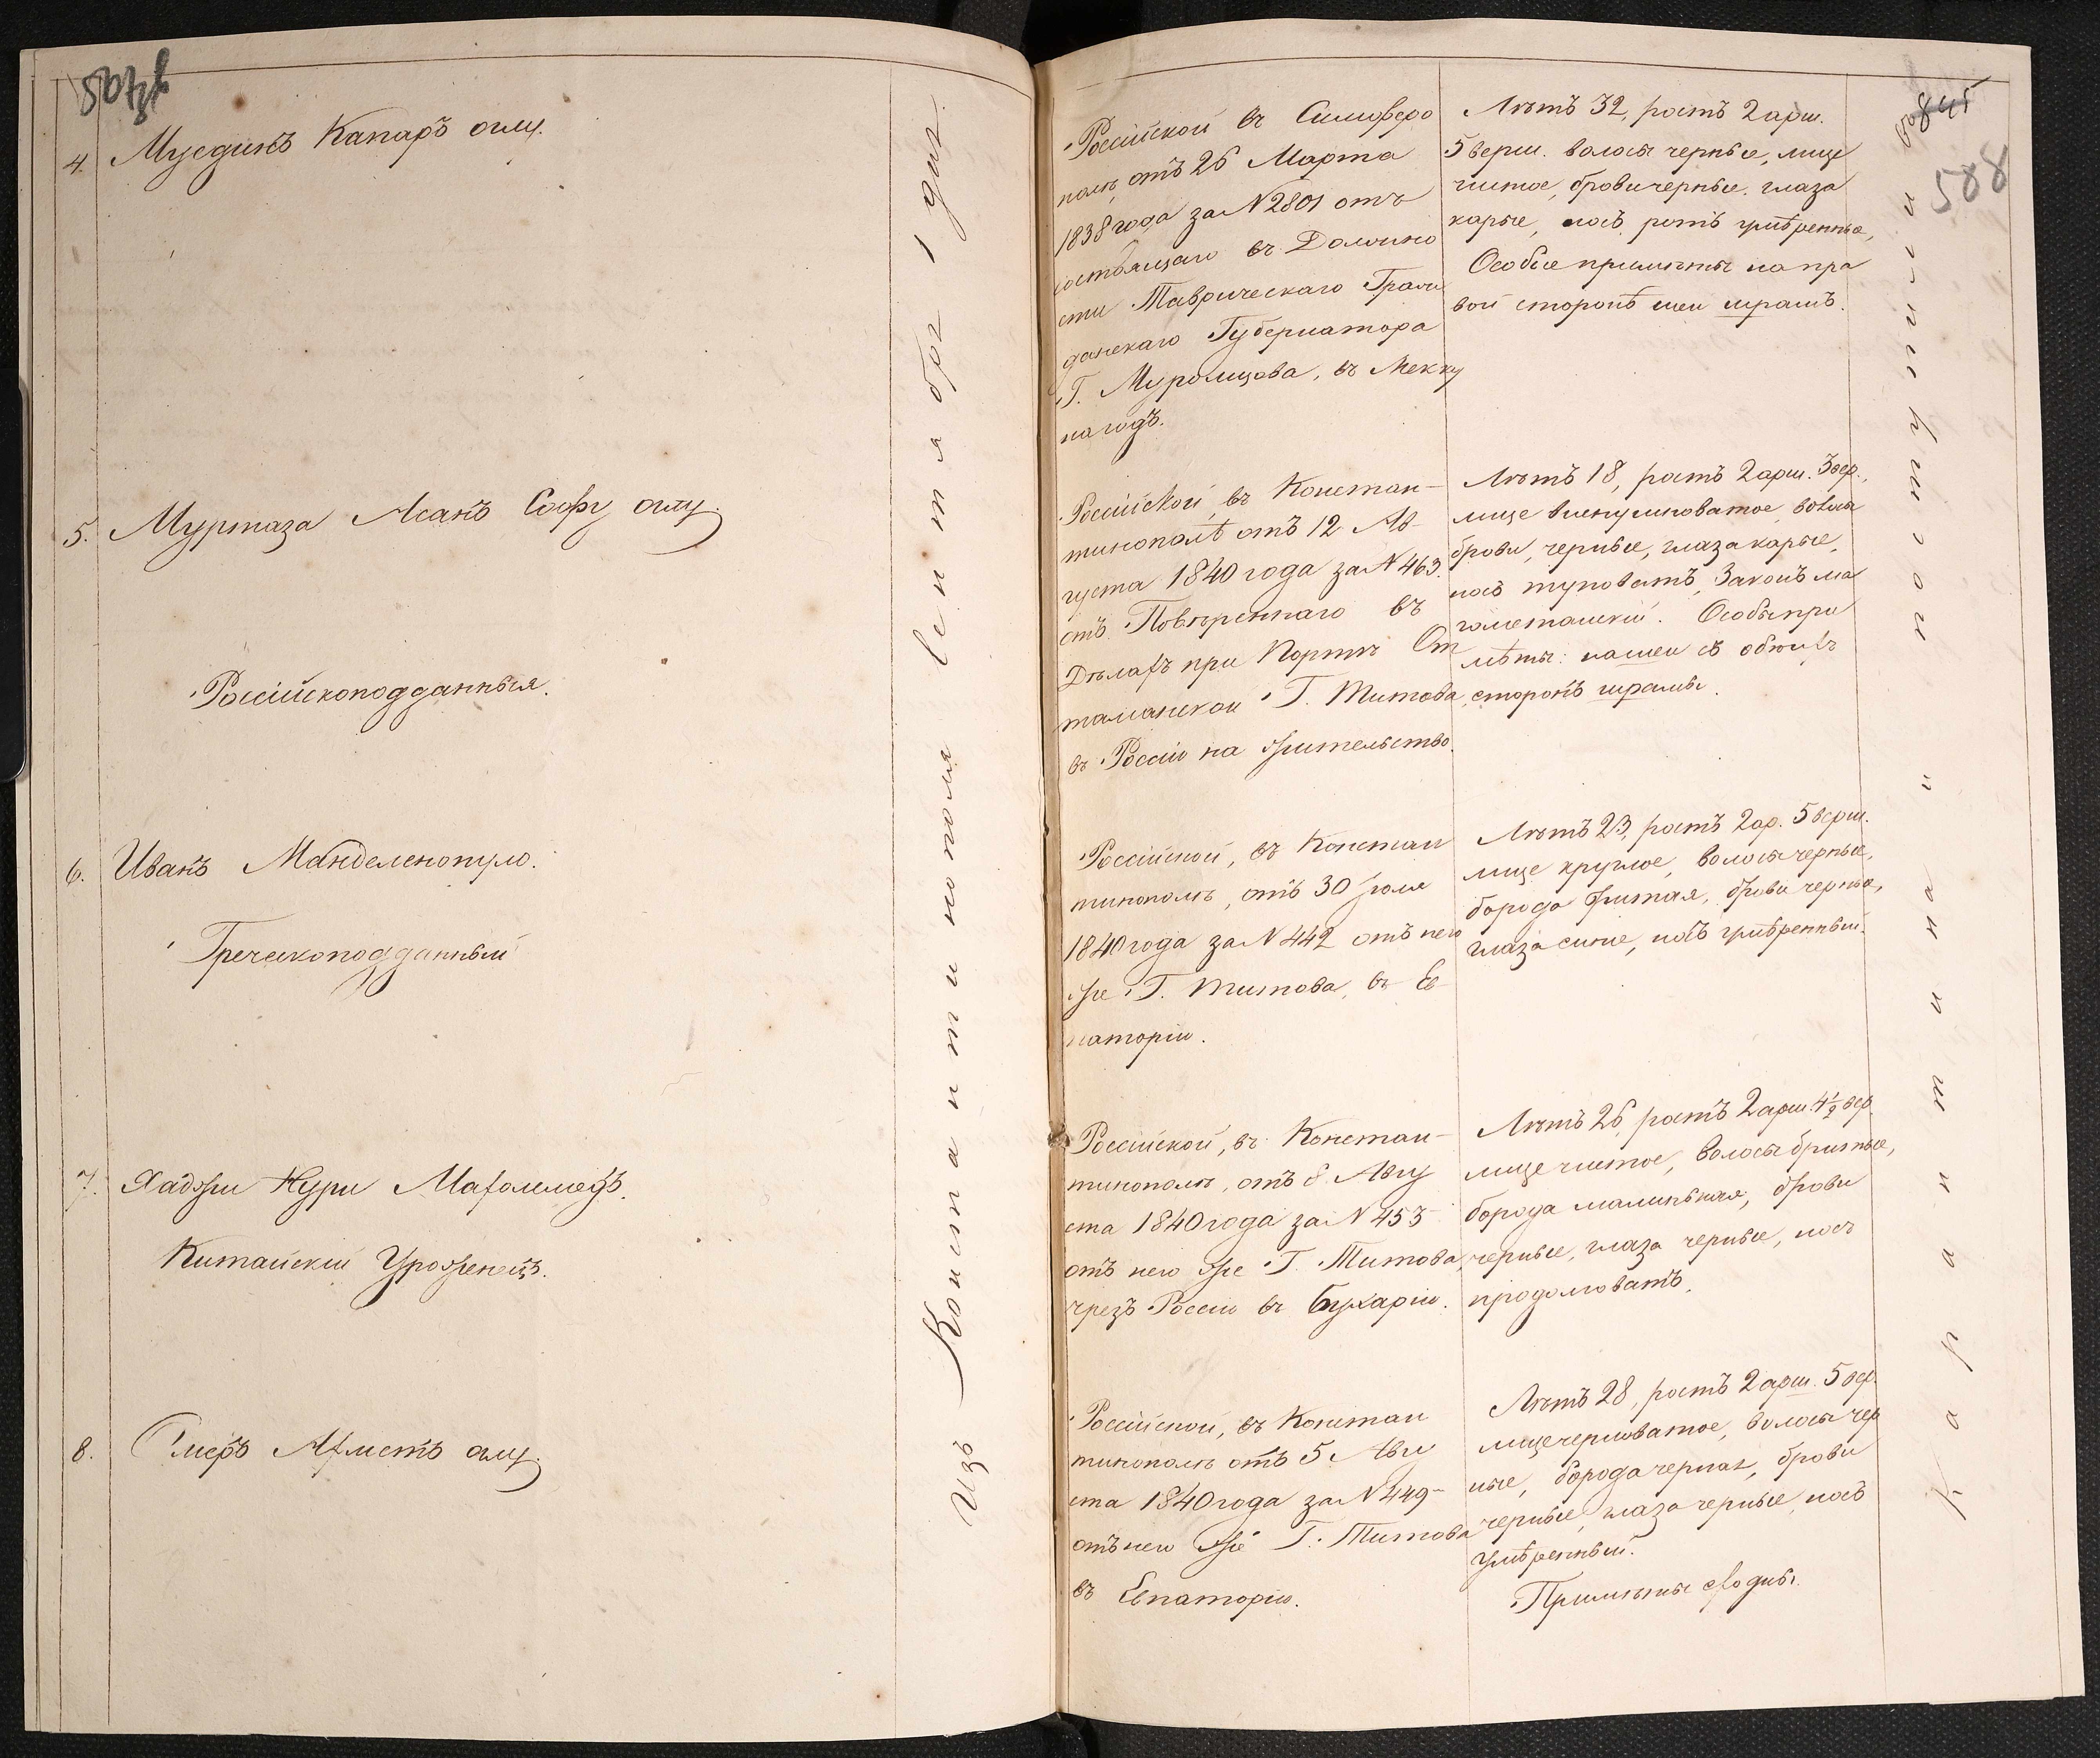 4. Мусединъ Капаръ оглу.
5. Муртаза Асанъ Софу оглу.
Россійскоподданныя.
6. Иванъ Манделенопуло.
Греческоподданный
7. Хаджи Нури Махоммедъ.
Китайскій Уроженецъ.
8. Ахметъ оглу.
Изъ Константинополя Сентября 1 дня.
Россійской въ Симферо
полѣ, отъ 26 Марта
1838 года за N 2801 отъ
состоящаго въ Должно
сти Таврическаго Граж
данскаго Губернатора
Г. Муромцова, въ Мекку
на годъ.
Лѣтъ 32, ростъ 2 арш.
5 верш. волосы черные, лице
чистое, брови черные. глаза
карые, носъ, ротъ умѣренные,
Особые примѣты на пра
вой сторонѣ шеи шрамъ.
Россійской въ Констан-
тинополѣ отъ 12 Ав-
густа 1840 года за N 463.
отъ Повѣреннаго въ
Дѣлахъ при Портѣ От
таманской Г. Титова,
въ Россію на жительство.
Лѣтъ 18, ростъ 2 арш. 3 вер.,
лице веснушковатое, волосы
брови, черные, глаза карые,
носъ туповатъ, Законъ ма
гометанскій. Особыя при
мѣты: на шеи съ обоихъ
сторонъ шрамы.
Россійской, въ Констан
тинополѣ, отъ 30 Іюля
1840 года за N 442 отъ него
же Г. Титова, въ Ев
паторію.
Лѣтъ 23, ростъ 2 ар. 5 верш.
лице круглое, волосы черные,
борода бритая, брови черные,
глаза синіе, носъ умѣренный.
Россійской, въ Констан-
тинополѣ, отъ 8 Авгу
ста 1840 года за N 453
отъ него же Г. Титова,
чрезъ Россію въ Бухарію.
Лѣтъ 26, ростъ 2 арш. 4½ вер
лице чистое, волосы бритые,
борода малинькая, брови
черные, глаза черные, носъ
продолговатъ.
Россійской, въ Констан
тинополѣ отъ 5 Авгу
ста 1840 года за N 449-
отъ него же Г. Титова
въ Евпаторію.
Лѣтъ 28, ростъ 2 арш. 5 вер.
лице черноватое, волосы чер
ные, борода черная, брови
черные, глаза черные, носъ
умѣренный.
Примѣты сходны.
588